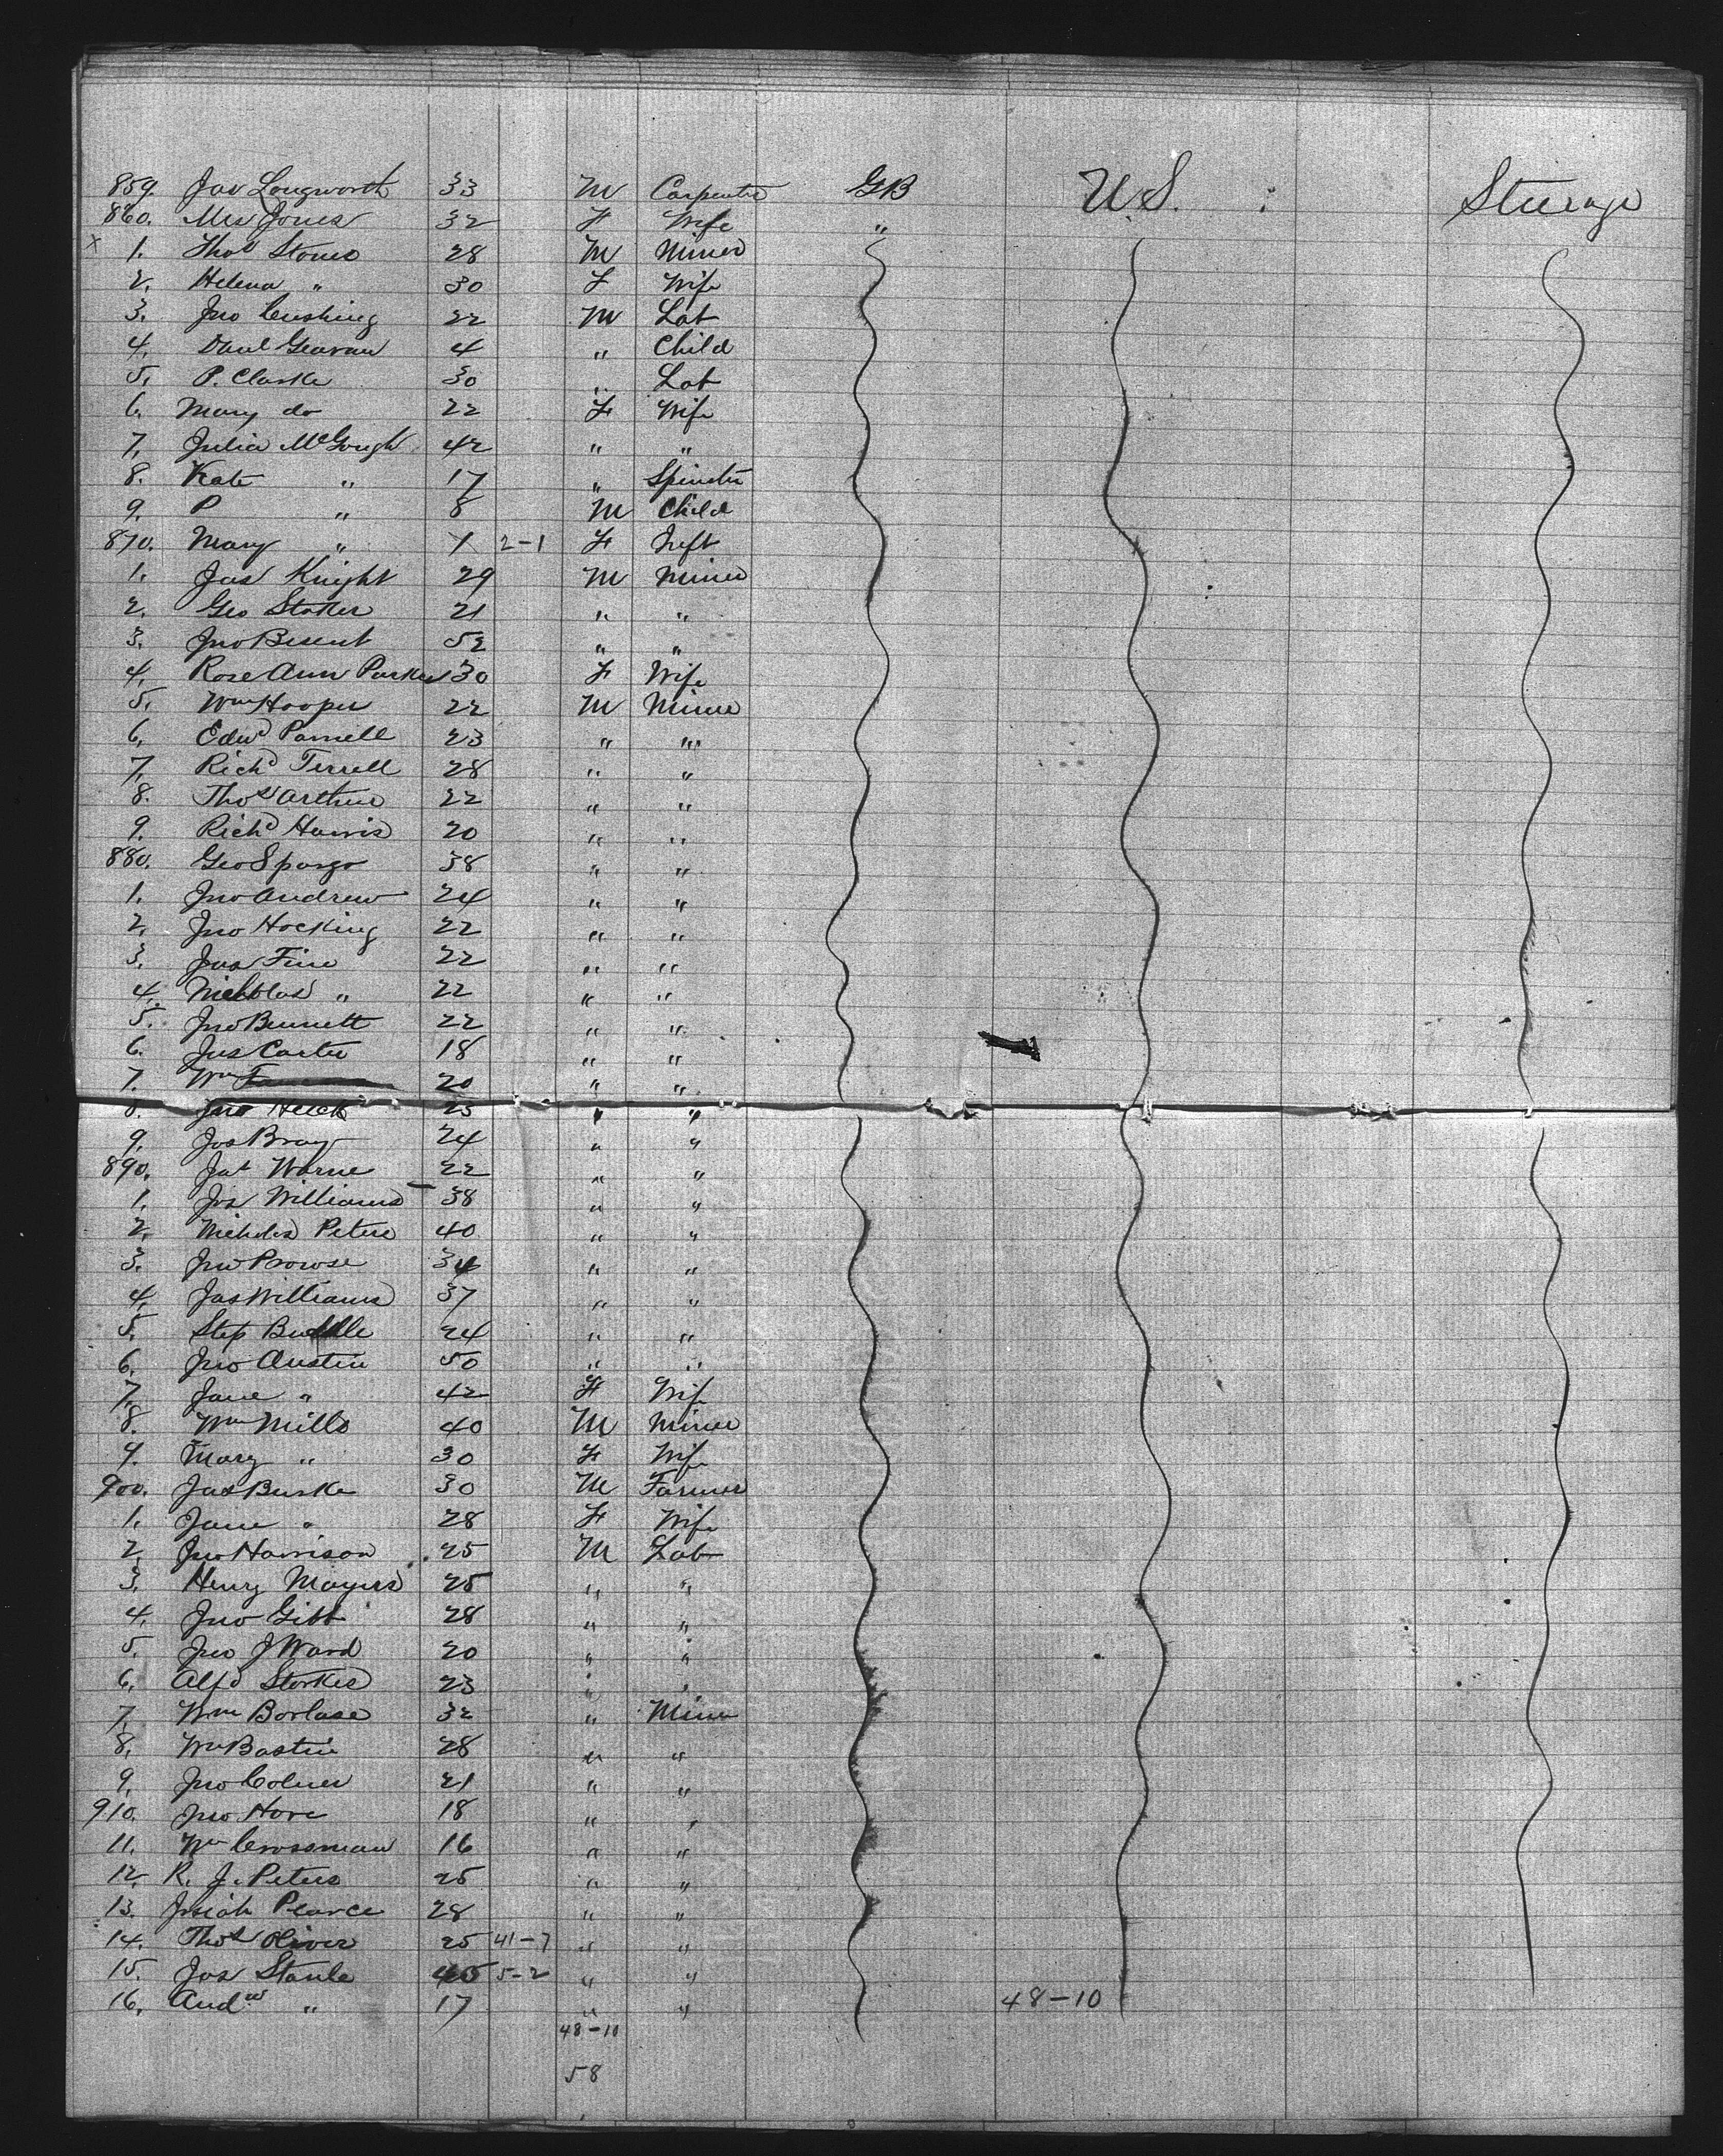 859. Jas Longworth 33 M Carpenter GB U.S. : Steerage
860. Mrs Jones 32 F Wife "
x 1. Thos Stones 28 M Miner
2. Helena " 30 F Wife
3. Jno Cushing 22 M Lab
4. Danl 4 " Child
5. P. Clarke 30 " Lab
6. Mary do 22 F Wife
7. Julia McGough 42 " "
8. Kate " 17 " Spinster
9. P " 8 M Child
870. Mary " 1 2-1 F Inft
1. Jas Knight 29 M Miner
2. Geo 21 " "
3. Jno 52 " "
4. Rose Ann Parker 30 F Wife
5. Wm Hooper 22 M Miner
6. Edwd Parnell 23 " "
7. Richd Terrell 28 " "
8. Thos Arthur 22 " "
9. Richd Harris 20 " "
880. Geo Spargo 38 " "
1. Jno Andrew 24 " "
2. Jno Hocking 22 " "
3. Jas 22 " "
4. Nicholas " 22 " "
5. Jno Bennett 22 " "
6. Jas Carter 18 " "
7. Wm 20 " "
8. Jno 23 " "
9. Jos Bray 24 " "
890. Jas Warne 22 " "
1. Jos Williams 38 " "
2. Nicholas Peters 40 " "
3. Jno Prowse 34 " "
4. Jas Williams 37 " "
5. Step 24 " "
6. Jno Austin 50 " "
7. Jane " 42 F Wife
8. Wm Mills 40 M Miner
9. Mary " 30 F Wife
900. Jas Burke 30 M Farmer
1. Jane " 28 F Wife
2. Jno Harrison 25 M Lab
3. Henry Mayers 25 " "
4. Jno Gibb 28 " "
5. Jno J Ward 20 " "
6. Alfd 23 " "
7. Wm Borlase 32 " Miner
8. Wm Bastin 28 " "
9. Jno 21 " "
910. Jno Hore 18 " "
11. Wm Crossman 16 " "
12. R. J. Peters 25 " "
13. Josiah Pearce 28 " "
14. Thos Oliver 25 41-7 " "
15. Jos 45 5-2 " "
16. Andw " 17 " " 48-10
48-10
58